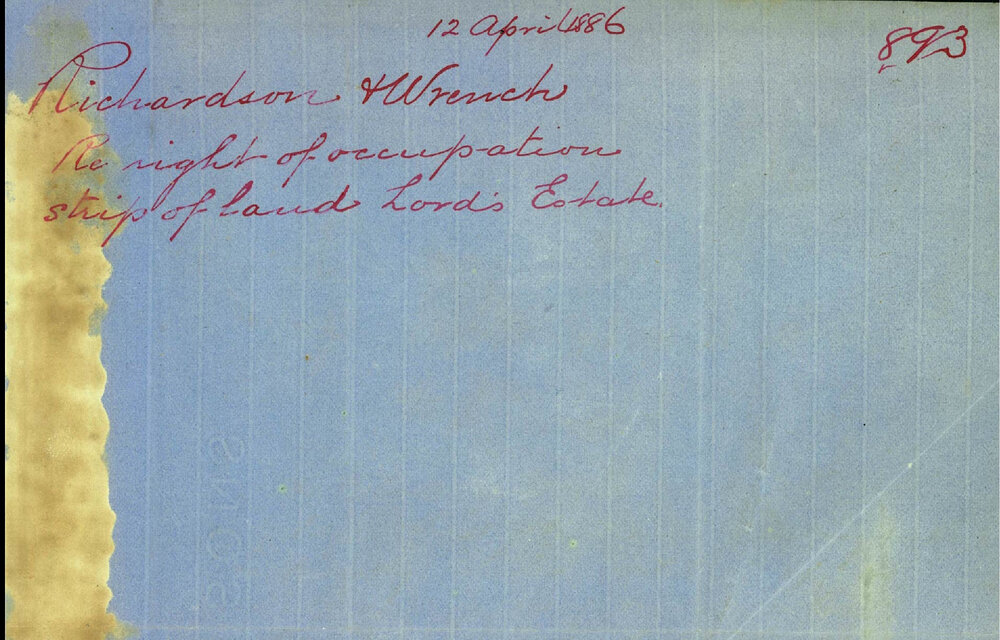 12 April 1886
893
Richardson & Wrench
Re right of occupation
strip of land Lord's Estate.